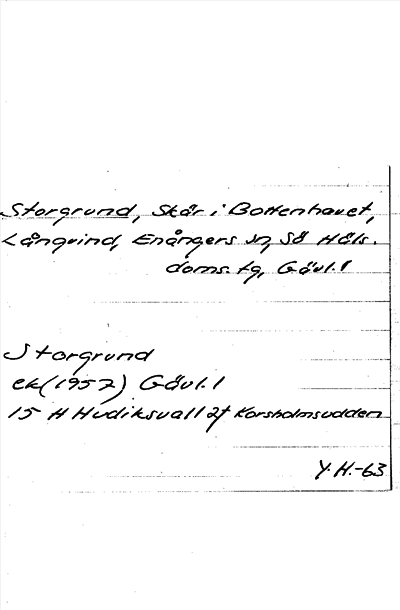 Storgrund, Skär i Bottenhavet,
Långvind, Enångers sn, Sö Häls.
doms. tg, Gävl. l
Storgrund
ek (1957) Gävl. l
15 H Hudiksvall 2f Korsholmsudden
Y. H.-63